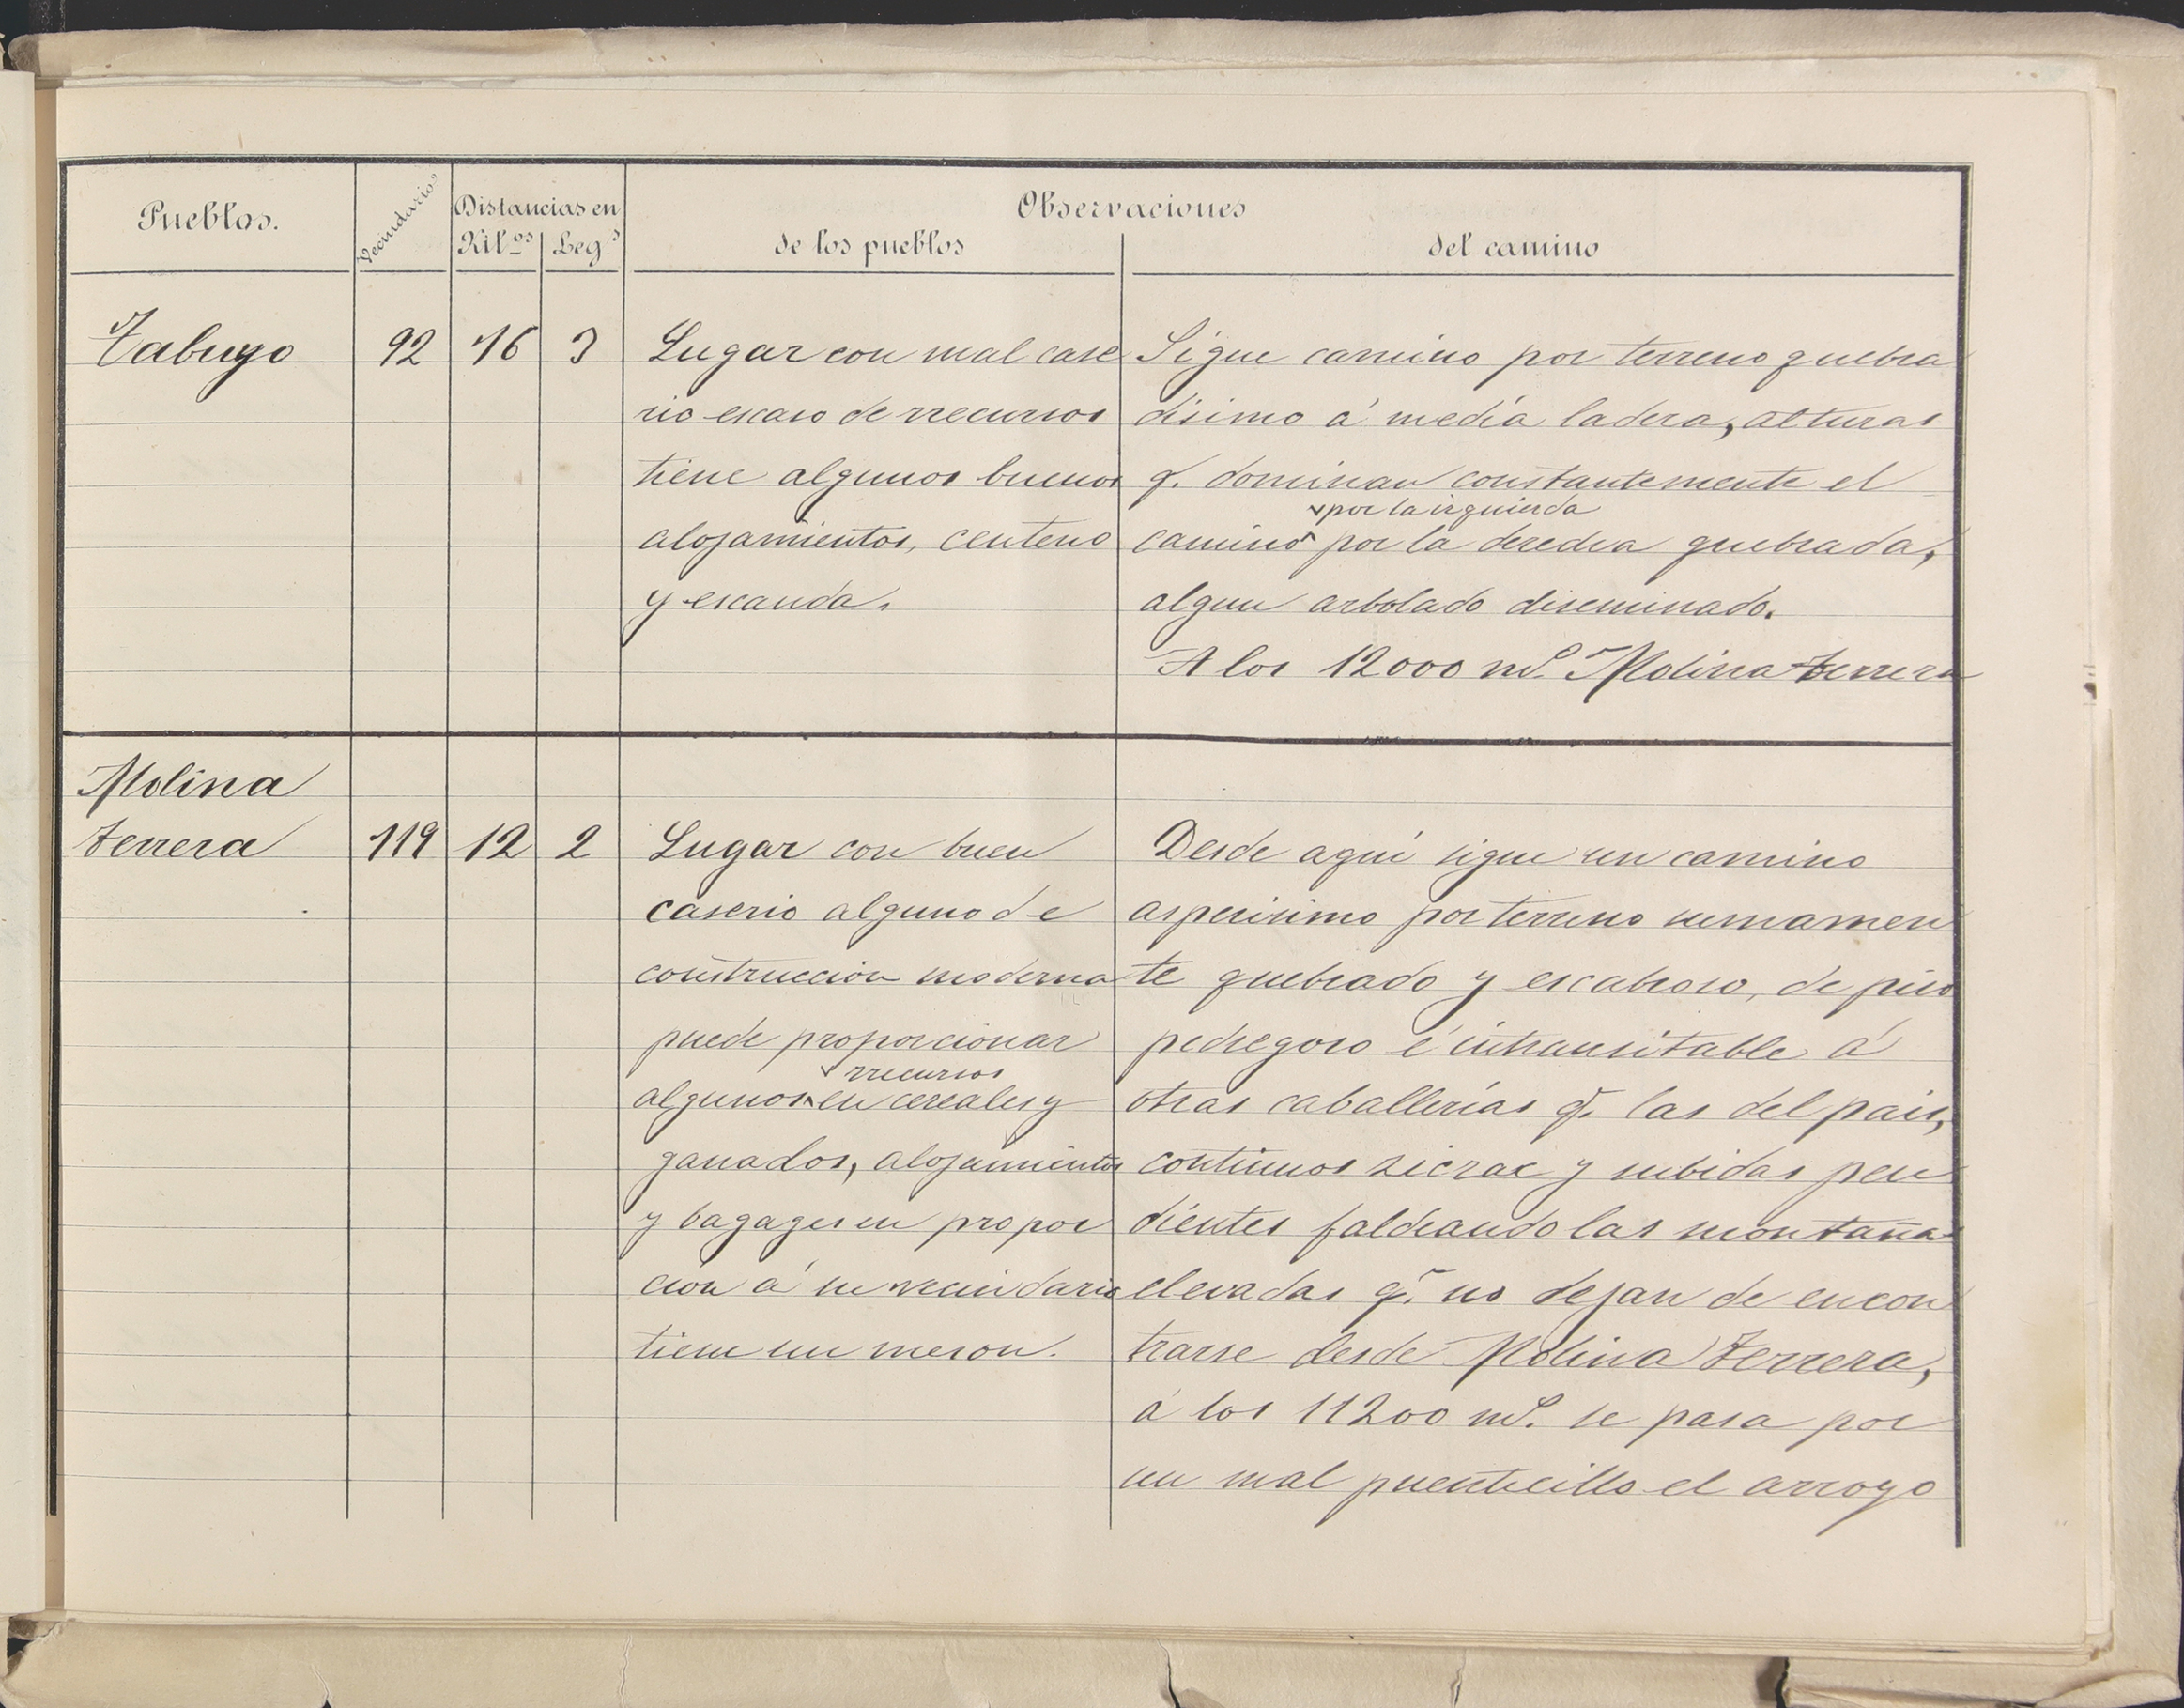 Pueblos.
Vecindario
Distancias en
Kil.os Leg.s
Observaciones
de los pueblos
del camino
Tabuyo
92
16
3
Lugar con mal case
rio escaso de rrecursos
tiene algunos buenos
alojamientos, centeno
y escanda.
Sigue camino por terreno quebra
disimo á media ladera, alturas
q. dominan constantemente el
por la izquierda
camino por la derecha quebrada,
algun arbolado diseminado.
A los 12000 m.s Molina ferrera
Molina
ferrera
119
12
2
Lugar con buen
caserio alguno de
construccion moderna
puede proporcionar
rrecursos
algunos en cereales y
ganados, alojamientos
y bagages en propor
cion á su vecindario
tiene un meson.
Desde aquí sigue un camino
asperisimo por terreno sumamen
te quebrado y escabroso, de piso
pedregoso é intransitable á
otras caballerías q. las del pais,
continuos ziczac y subidas pen
dientes faldeando las montañas
elevadas q. no dejan de encon
trarse desde Molina ferrera,
á los 11200 m.s se pasa por
un mal puentecillo el arroyo